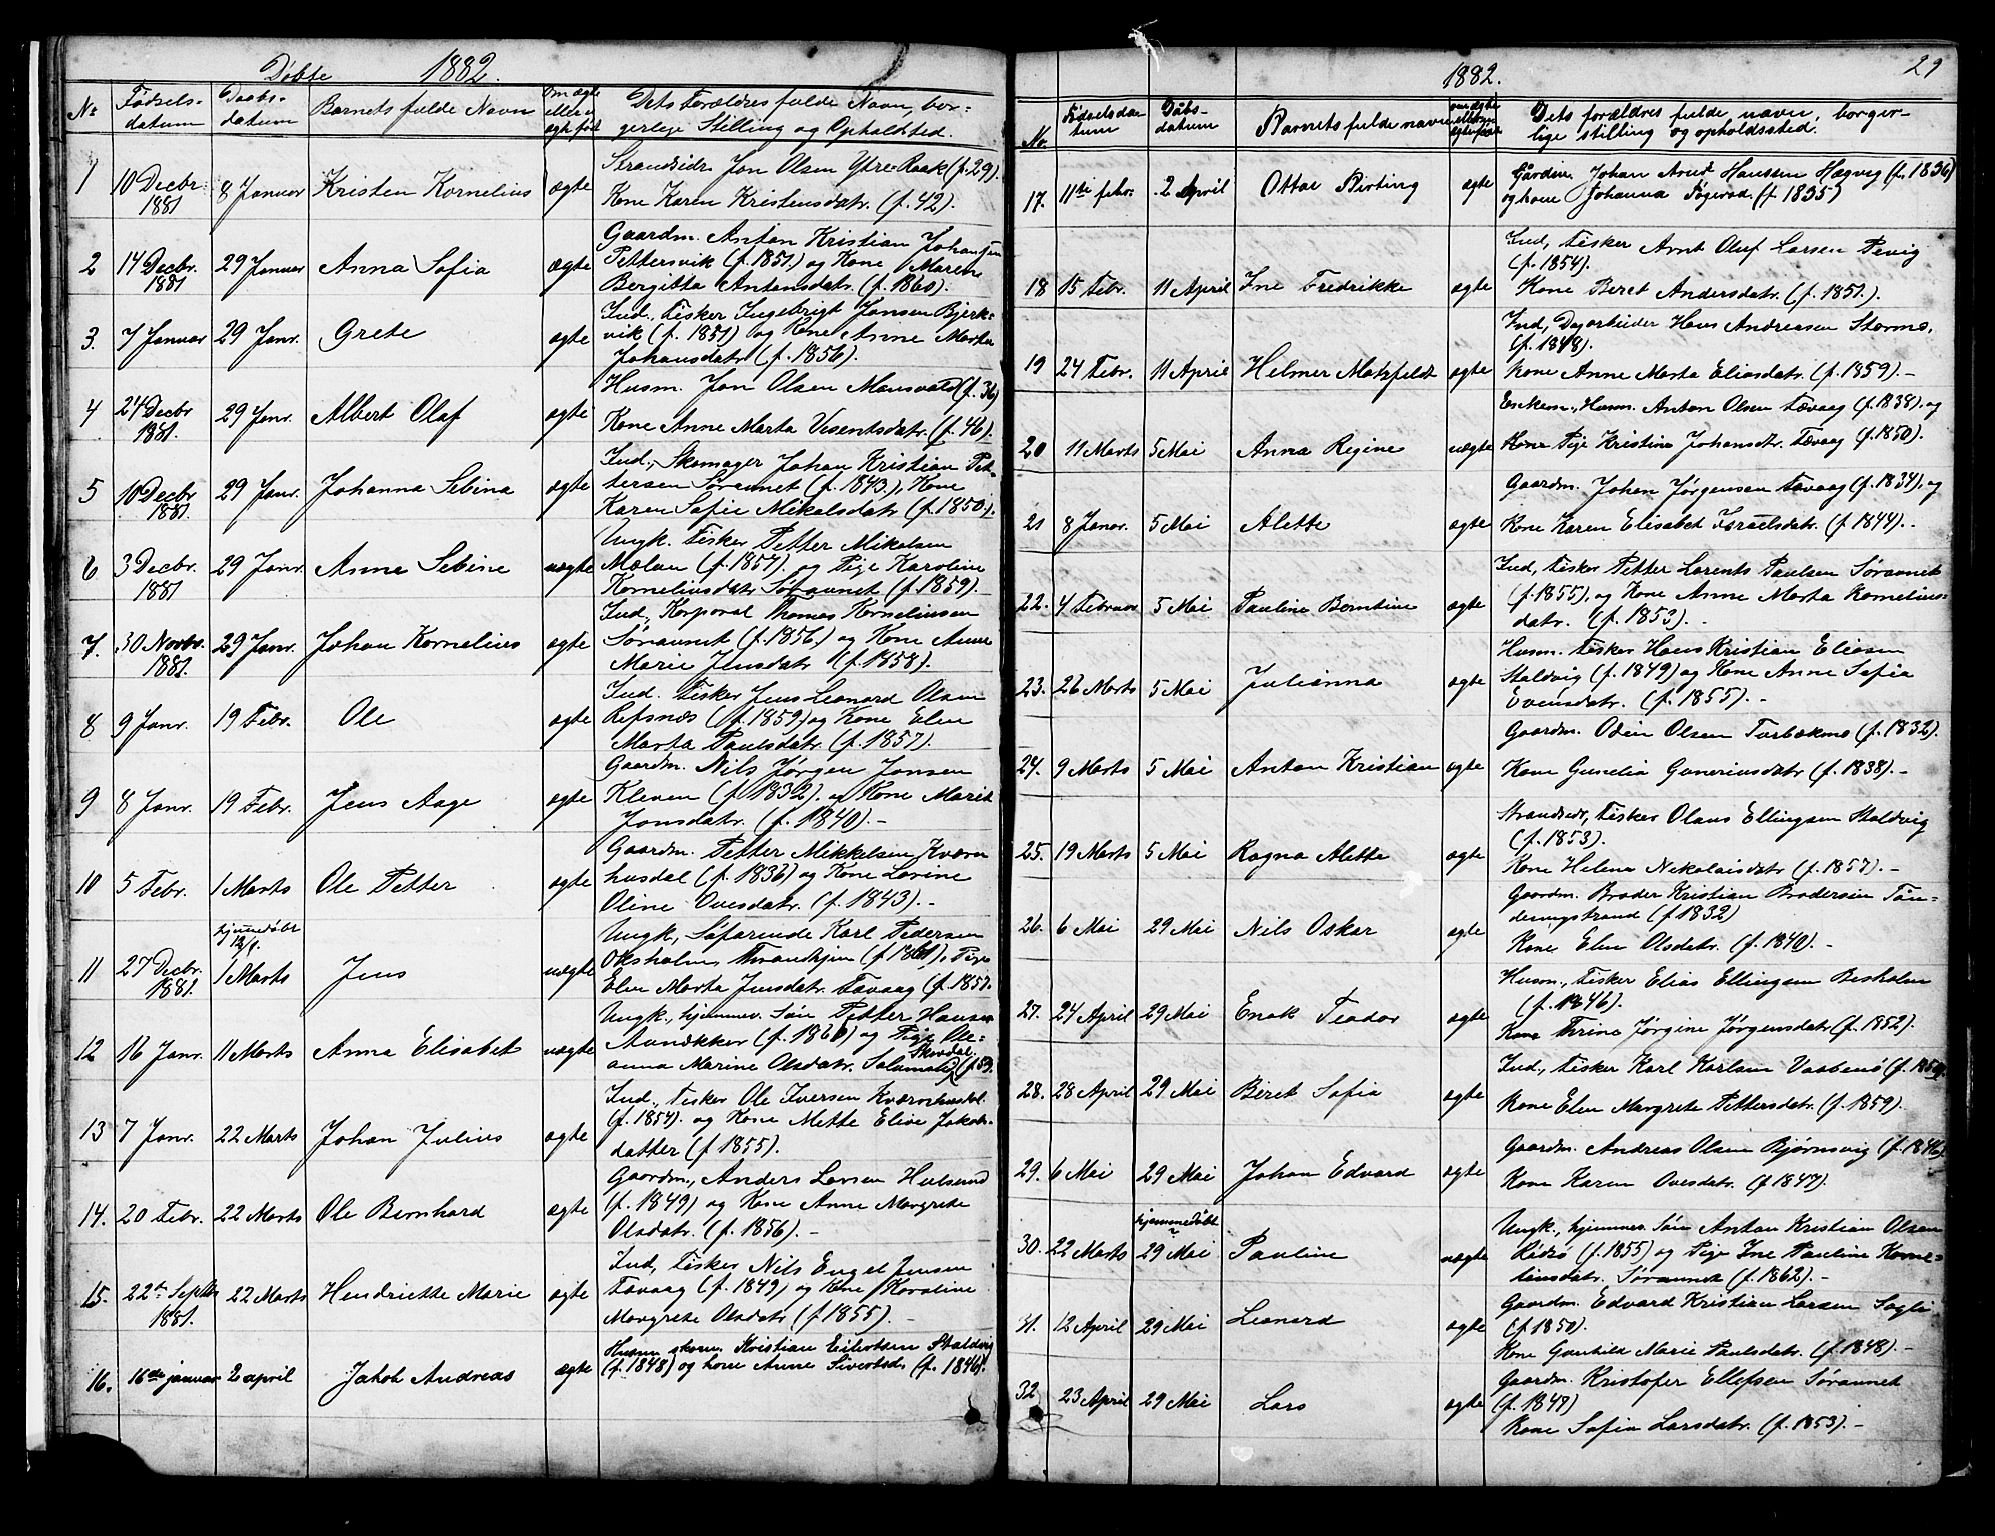 Døbte 1882.
No Fødselsdatum Daabsdatum Barnets fulde Navn Om ægte eller uægte født Dets Forældres fulde Navn, borgerlige Stilling og Opholdsted.
1 10 Decbr. 1881 8 Januar Kristen Kornelius ægte Strandsidr. Jon Olsen Ytre-Raak (f. 29).
Kone Karen Kristensdatr. (f. 42).
2 14 Decbr. 1881 29 Januar Anna Sofia ægte Gaardm. Anton Kristian Johansen
Pettersvik (f. 1851) og Kone Marene
Bergitta Antonsdatr. (f. 1860).
3. 7 Januar 29 Janr. Grete ægte Ind., Fisker Ingebrigt Jonsen Bjerk-
vik (f. 1851) og Kone Anne Marta
Johansdatr. (f. 1856).
4 24 Decbr 1881. 29 Janr. Albert Olaf ægte Husm. Jon Olsen Mausvald (f. 36)
Kone Anne Marta Visentsdatr. (f. 46).
5 10 Decbr 1881. 29 Janr. Johanna Sebina ægte Ind., Skomager Johan Kristian Pet-
tersen Søraunet (f. 1843), Kone
Karen Sofie Mikalsdatr (f. 1850).
6 3 Decbr. 1881 29 Janr. Anne Sebine uægte Ungk. Fisker Petter Mikalsen
Mælan (f. 1857). og Pige Karoline
Korneliusdatr. Søraunet (f. 1859).
7. 30 Novbr. 1881. 29 Janr. Johan Kornelius ægte Ind., Korporal Thomas Korneliussen
Søraunet (f. 1856) og Kone Anne
Marie Jensdatr (f. 1858).
8 9 Janr. 19 Febr. Ole ægte Ind. Fisker Jens Leonard Olsen
Refsnæs (f. 1859) og Kone Elen
Marta Paulsdatr. (f. 1857).
9 8 Janr. 19 Febr. Jens Aage ægte Gaardm. Nils Jørgen Jonsen
Kleven (f. 1832). og Kone Marit
Jonsdatr. (f. 1840).-
10 5 Febr. 1 Marts Ole Petter ægte Gaardm. Petter Mikkelsen Kværn
husdal (f. 1836) og Kone Lovine
Oline Ovesdatr. (f. 1843).-
11 27 Decbr. 1881. hjemmedøbt 12/1. 1 Marts Jens uægte Ungk., Søfarende Karl Pedersen
Oksholmen Trondhjem (f. 1861), Pige
Elen Marta Jensdatr. Tøvaag (f. 1857.
12 16 Janr. 11 Marts Anna Elisabet uægte Ungk., hjemmev. Søn Petter Hansen
Aunækker (f. 1860) og Pige Ole-
anna Marine Olsdatr. Skordal (f. 59.
13 7 Janr. 22 Marts Johan Julius ægte Ind., Fisker Ole Iversen Kværnhusdal
(f. 1854). og Kone Mette Elive Jakobs-
datter (f. 1855).
14. 20 Febr. 22 Marts Ole Bernhard ægte Gaardm., Anders Larsen Hulsund
(f. 1849) og Kone Anne Margrete
Olsdatr. (f. 1856).-
15. 22de Septbr 1881. 22 Marts Hendriette Marie ægte Ind, Fisker Nils Enget Jensen
Tøvaag (f. 1849) og Kone Karoline
Margrete Olsdatr (f. 1855).-
16. 16de januar 2 april Jakob Andreas ægte Husm skom. Kristian Eilertsen Staldvig
(f. 1848) og kone Anne Sivertsd. (f. 1846).
29
1882.
No. Fødselsdatum Dåbsdatum Barnets fulde navn om ægte eller uægte født Dets forældres fulde navn, borger-
lige stilling og opholdssted.
17. 11te febr. 2 April Ottar Birting ægte Gårdm. Johan Arnt Hanssen Hægvig (f. 1836)
og kone Johanna (f. 1835)
18 15 Febr. 11 April Ine Fredrikke ægte Ind, Fisker Arnt Oluf Larsen Tevig
(f. 1854).
Kone Beret Andersdatr. (f. 1851.).
19 24 Febr. 11 April Helmer Matzfeldt ægte Ind, Dagarbeider Hans Andreasen Stormo,
(f. 1848).
Kone Anne Marta Eliasdatr. (f. 1859).-
20 11 Marts 5 Mai Anna Regine uægte Enkem., Husm. Anton Olsen Tævaag (f. 1838). og
Pige Kristine Johansdtr. Tævaag (f. 1850).
21 8 Janr. 5 Mai Alette ægte Gaardm. Johan Jørgensen Tævaag (f. 1834), og
Kone Karen Elisabet Israelsdatr. (f. 1844).-
22. 4 Februar 5 Mai Pauline Berntine ægte Ind, Fisker Petter Lorents Paulsen Søraunet
(f. 1855), og Kone Anne Marta Kornelius-
datr. (f. 1853).-
23. 26 Marts 5 Mai Julianna ægte Husm. Fisker Hans Kristian Eliasen
Staldvig (f. 1849) og Kone Anne Sofia
Evensdatr. (f. 1855).-
24. 9 Marts 5 Mai Anton Kristian ægte Gaardm. Odin Olsen Turbækmo (f. 1832).
Kone Gunelia Guneriusdatr (f. 1838).-
25. 19 Marts 5 Mai Ragna Alette ægte Strandsidr, Fisker Olaus Ellingsen Staldvig
(f. 1853).
Kone Helena Nekolaisdatr (f. 1857).-
26. 6 Mai 29 Mai Nils Oskar ægte Gaardm. Broder Kristian Brodersen Tøn-
deringstrand (f 1832)
Kone Elen Olsdatr. (f. 1840).-
27. 24 April 29 Mai Enok Teodor ægte Husm., Fisker Elias Ellingsen Besholm
(f. 1846).
Kone Trine Jørgine Jørgensdatr (f. 1852).
28. 28 April 29 Mai Beret Sofia ægte Ind., Fisker Karl Karlsen Vaabenø
Kone Elen Margrete Pettersdatr. (f. 1859).
29. 6 Mai 29 Mai Johan Edvard ægte Gaardm. Andreas Olsen Bjørnsvig (f. 1846).
Kone Karen Ovesdatr. (f 1847).
30. 22 Marts hjemmedøbt 29 Mai Pauline uægte Ungk., hjemmev. Søn Anton Kristian Olsen
Ridsø (f. 1855) og Pige Ine Pauline Korne-
liusdatr. Søraunet (f. 1862).-
31. 12 April 29 Mai Leonard ægte Gaardm. Edvard Kristian Larsen Sagli
(f. 1850).
Kone Gunhild Marie Paulsdatr. (f. 1848).-
32 23 April 29 Mai Lars ægte Gaardm. Kristofer Ellefsen Søraunet
(f. 1848)
Kone Sofia Larsdatr. (f. 1853).-